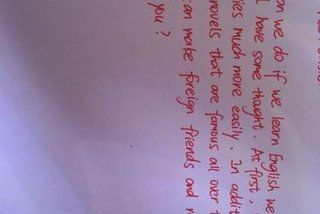 an we do if we learn English we
I have some thought. At first,
ies much more easily. In addi
novels that are famous all over
can make foreign friends and
you?